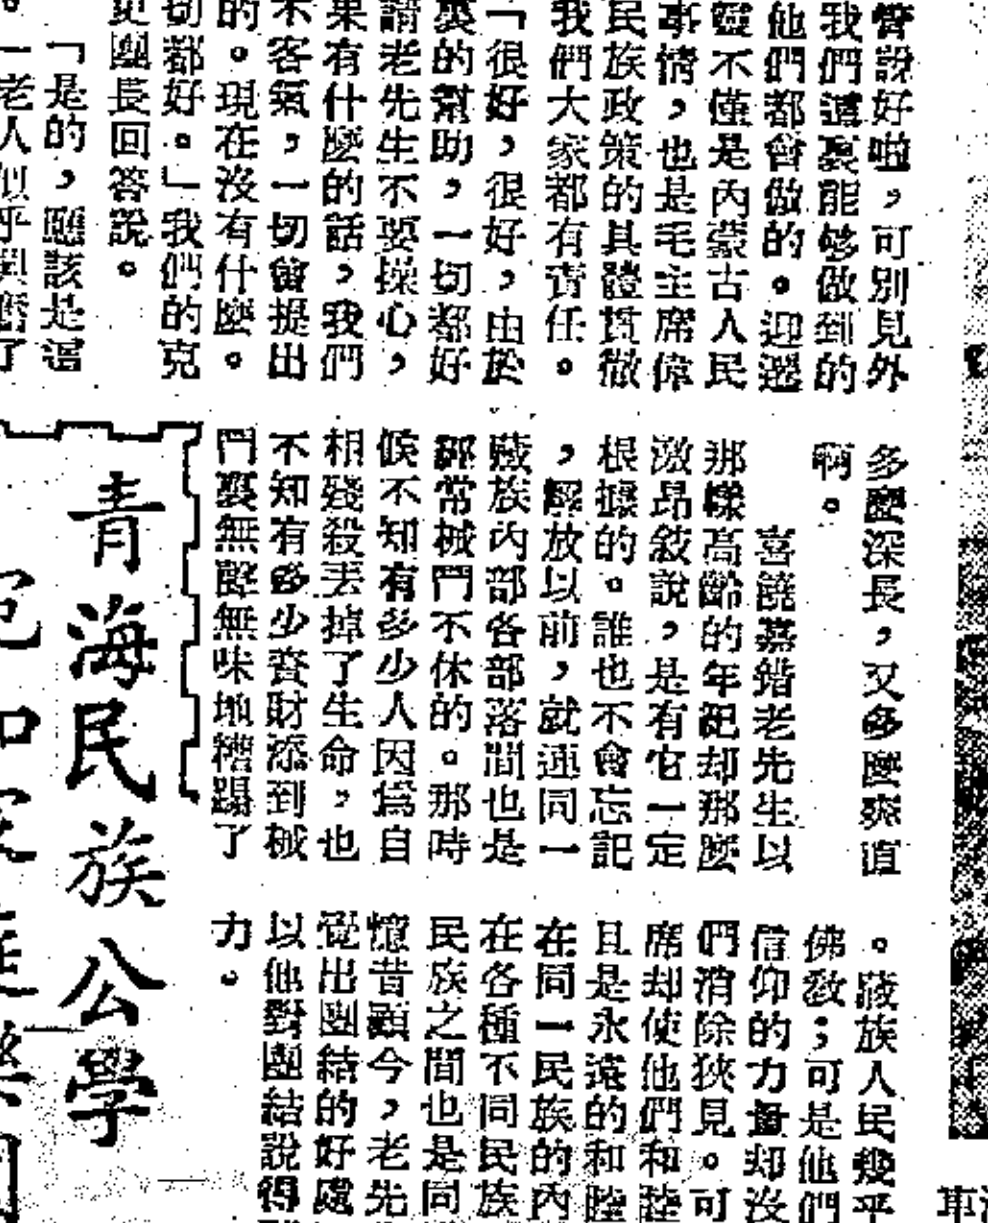 管說好啦，可別見外
我們這裏能够做到的
他們都會做的。迎還
靈不僅是內蒙古人民
事情，也是毛主席偉
民族政策的具體貫徹
我們大家都有責任。
「很好，很好，由於
裏的幫助，一切都好
請老先生不要操心，
果有什麽的話，我們
不客氣，一切會提出
的。現在沒有什麽。
切都好。」我們的克
更團長回答說。
「是的，應該是這
。」老人似乎
多麼深長，又多麼爽直
啊。
喜饒嘉錯老先生以
那樣高齡的年紀却那麽
激昂敍說，是有它一定
根據的。誰也不會忘記
，解放以前，就連同一
藏族內部各部落間也是
經常械鬥不休的。那時
候不知有多少人因爲自
相殘殺丟掉了生命，也
不知有多少資財添到械
鬥裏無聲無味地糟蹋了
。藏族人民幾乎
佛教；可是他們
信仰的力量却沒
們消除狹見。可
席却使他們和睦
且是永遠的和睦
在同一民族的內
在各種不同民族
民族之間也是同
憶昔顧今，老先
覺出團結的好處
以他對團結說得
力。
青海民族公學